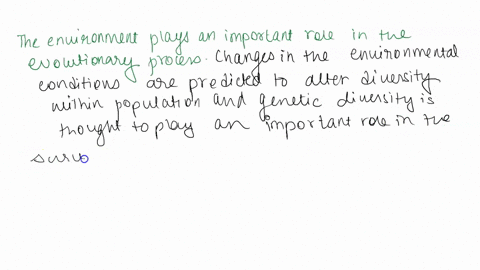 The environment plays an important role in the
evolutionary process. Changes in the environmental
conditions are predicted to alter diversity
within population and genetic diversity is
thought to play an important role in the
surv